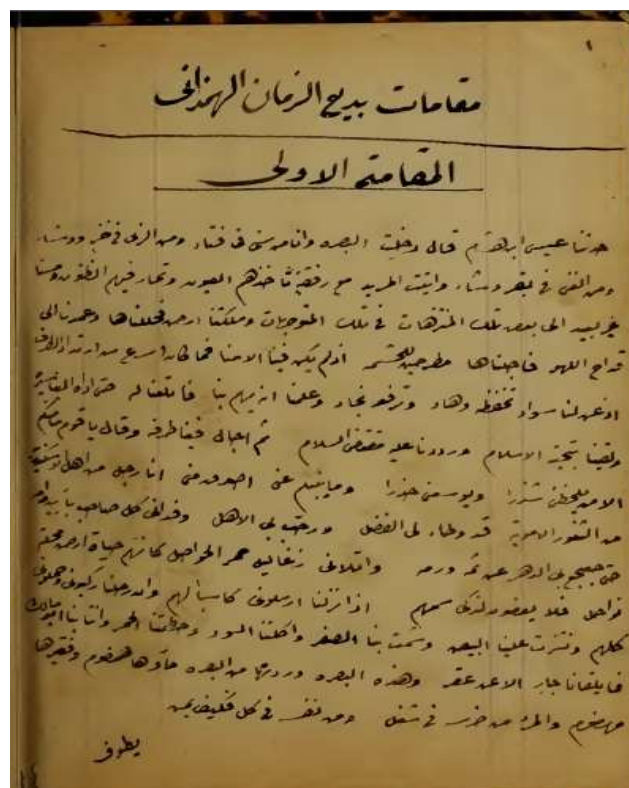 ١
مقامات بديع الزمان الهمذانى
المقامة الاولى
حدثنا عيسى ابن هشام قال دخلت البصره وانا من سنى فى فتاء ومن الزى فى حبر ووشاء
ومن الغنى فى بقر وشاء واتيت المربد مع رفقة تأخذهم العيون وتحار فيهم الظنون ومشينا
غير بعيد الى بعض تلك المتنزهات فى تلك المتوجهات وملكتنا ارض فحللناها وعمدنا الى
قداح اللهو فاجلناها مطرحين للحشمه اذ لم يكن فينا الا منا فما كان اسرع من ارتداد الطرف
او عن لنا سواد تخفضه وهاد وترفعه نجاد وعلمنا انه يهم بنا فاتلعنا له حتى اداه الينا سيره
ولقينا بتحية الاسلام ورددنا عليه مقتضى السلام ثم اجال فينا طرفه وقال يا قوم ما منكم
الا من يلحظنى شزرا ويوسعنى حزرا وما ينبئكم عنى اصدق منى انا رجل من اهل الاسكندرية
من الثغور الاموية قد وطاء لى الفضل ورحب بى الاهل
حتى جعجع بى الدهر عن ثمه ورمه واتلانى زغاليل حمر الحواصل كانهم حيات ارض محلة
فلو يعضون لذكى سمهم اذا نزلنا ارسلونى كاسبا لهم وان رحلنا ركبونى
كلهم ونشزت علينا البيض وشمست بنا الصفر واكلتنا السود وحطمتنا الحمر وانتابنا ابو مالك
فما يلقانا جابر الا عن عقر وهذه البصره ماؤها هضوم وفقيرها
مهضوم والمرء من ضرسه فى شغل ومن نفسه فى كل فكيف بمن
يطوف